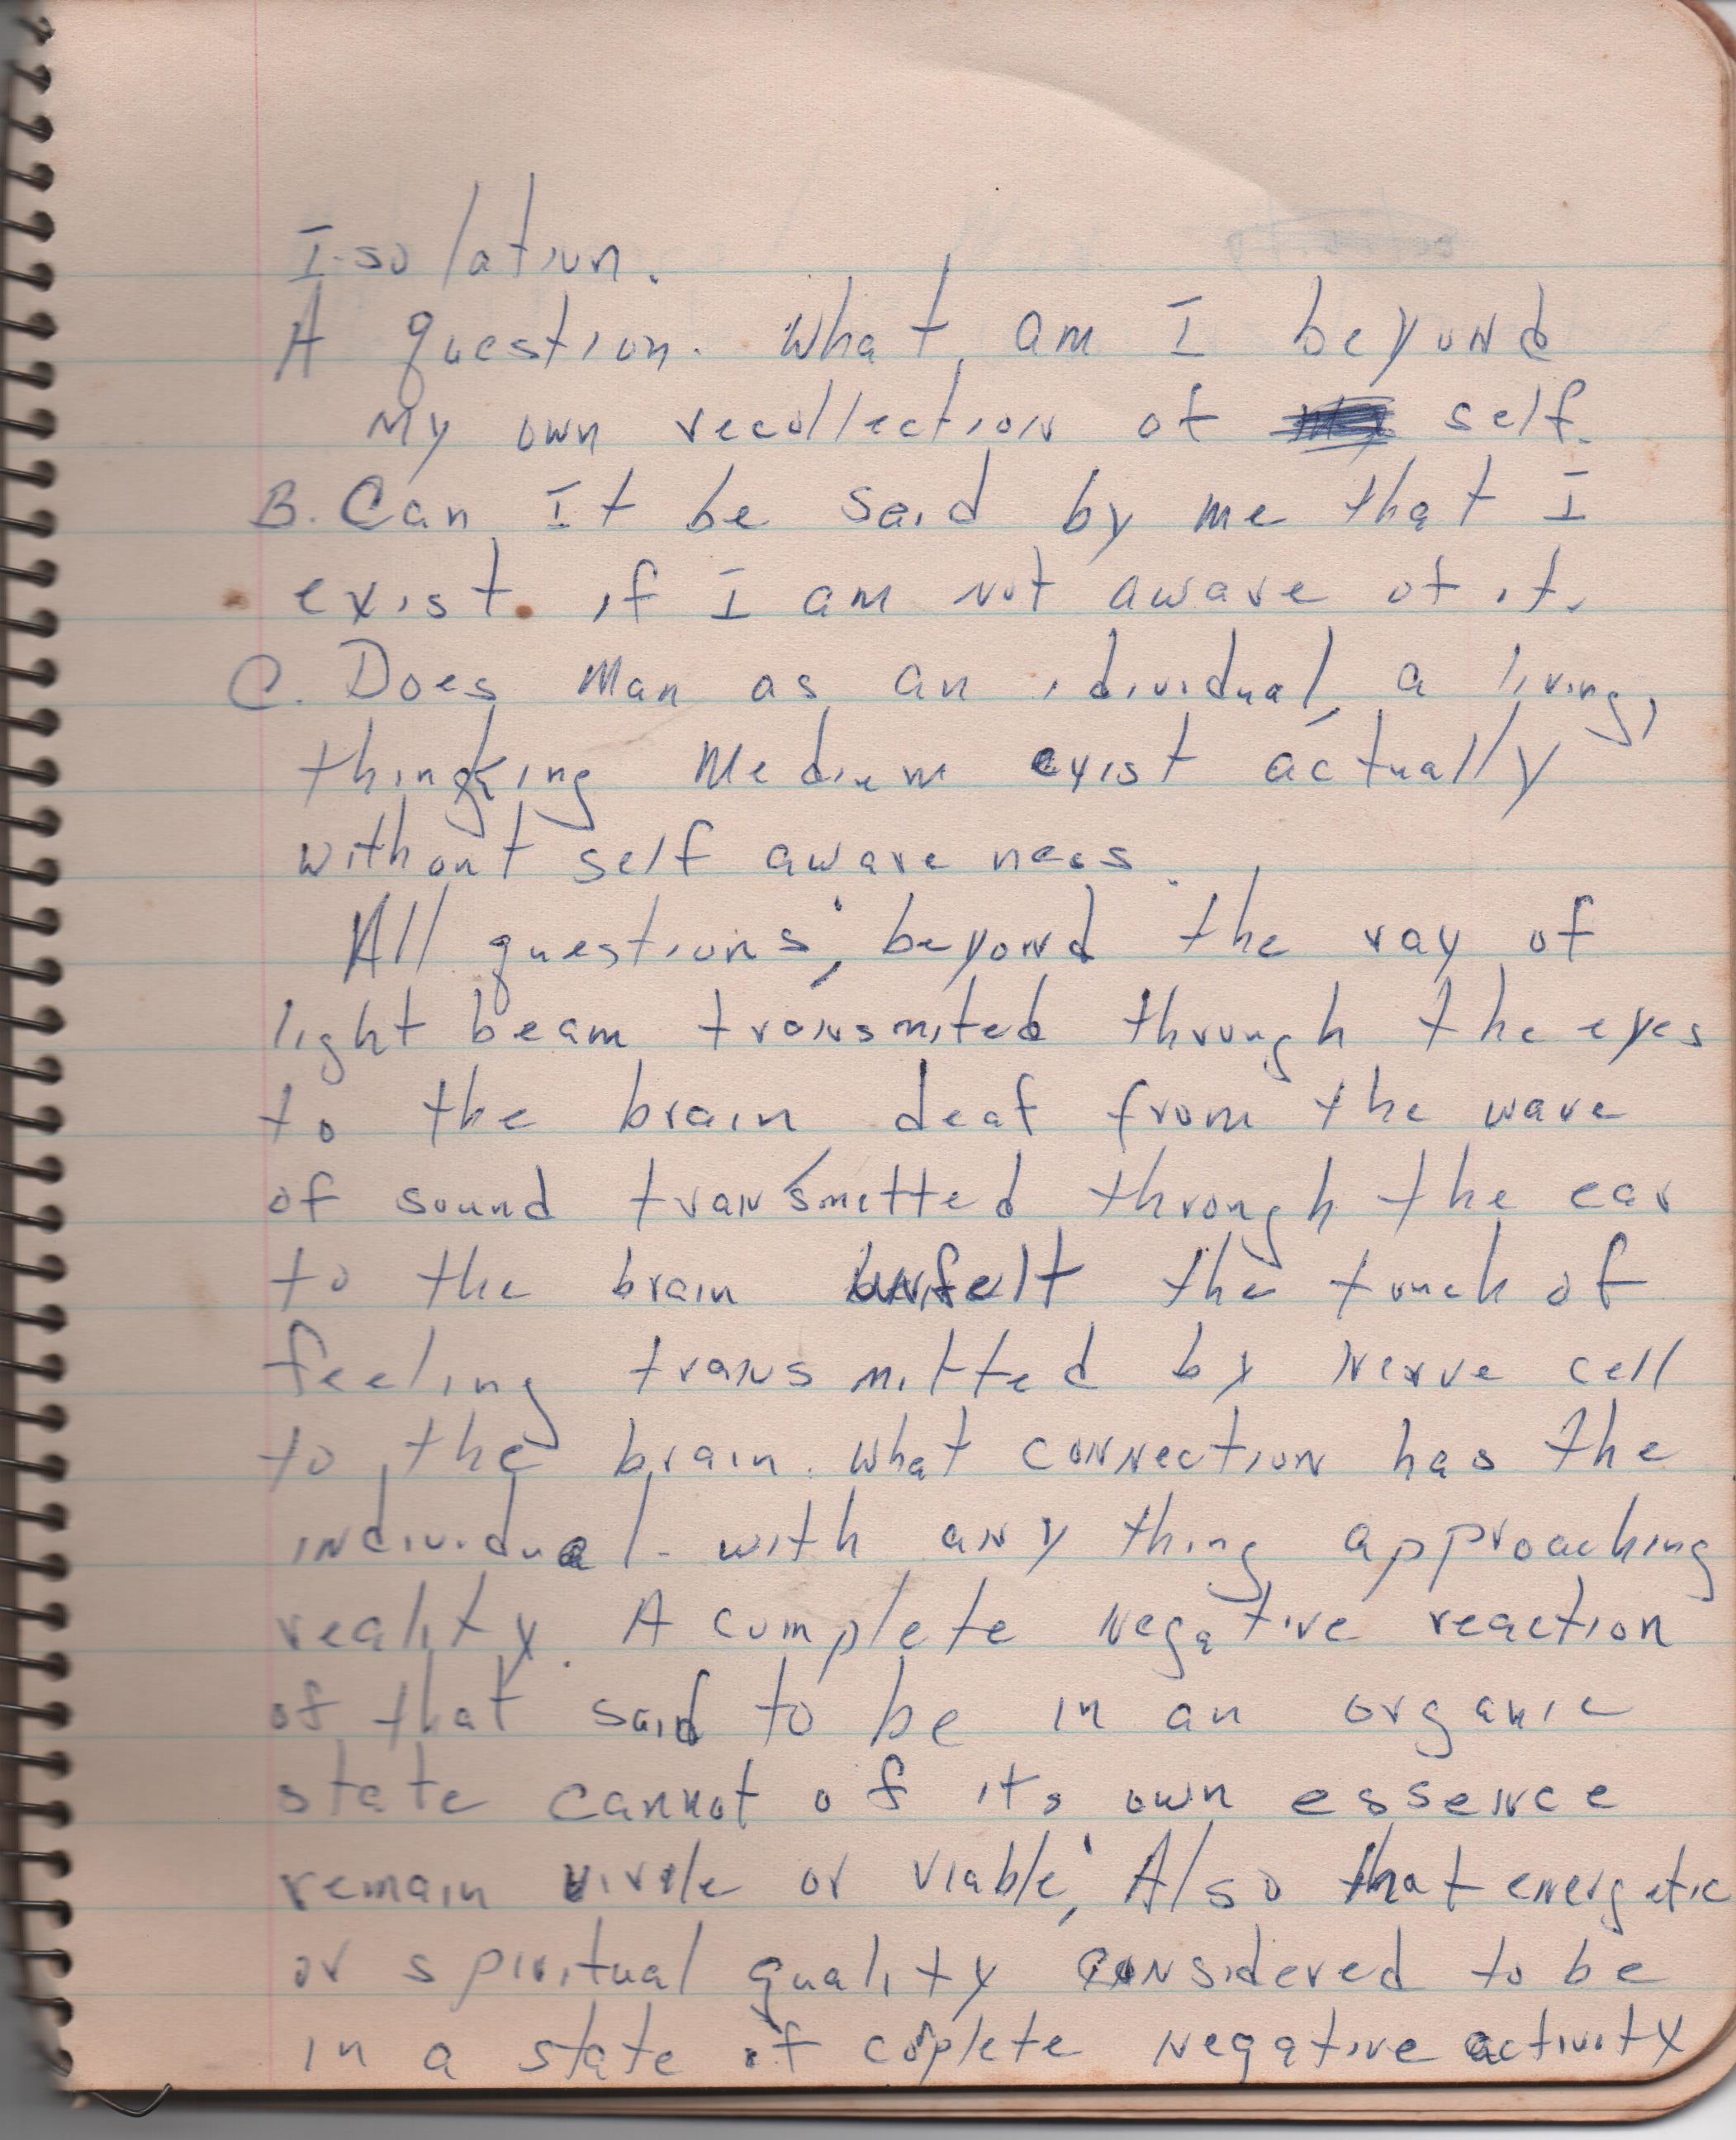 Isolation.
A question. What am I beyond
my own recollection of self.
B. Can It be said by me that I
exist if I am not aware of it.
C. Does Man as an idividual, a living,
thingking Medium exist actually
without self awareness.
All questions; beyond the ray of
light beam transmited through the eyes
to the brain deaf from the wave
of sound transmetted through the ear
to the brain unfelt the touch of
feeling transmitted by nerve cell
to the brain. what connection has the
individual - with any thing approaching
reality. A complete negative reaction
of that said to be in an organic
state cannot of its own essence
remain virile or viable; Also that energetic
or spiritual quality considered to be
in a state of coplete negative activity